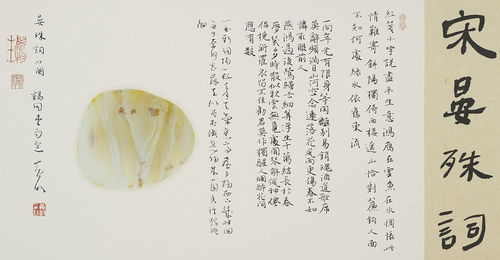 宋晏殊詞
紅箋小字說盡平生意鴻雁在雲魚在水惆悵此
情難寄斜陽獨倚西樓遙山恰對簾鉤人面
不知何處綠水依舊東流
一向年光有限身等閒離別易銷魂酒筵歌席
莫辭頻滿目山河空念遠落花風雨更傷春不如
憐取眼前人
燕鴻過後鶯歸去細算浮生千萬緒長於春
夢幾多時散似秋雲無覓處聞琴解佩神仙
侶挽斷羅衣留不住勸君莫作獨醒人爛醉花間
應有數
一曲新詞酒一杯去年天氣舊亭臺夕陽西下幾時回
無可奈何花落去似曾相識燕歸來小園香徑獨徘
徊
晏殊詞四闋